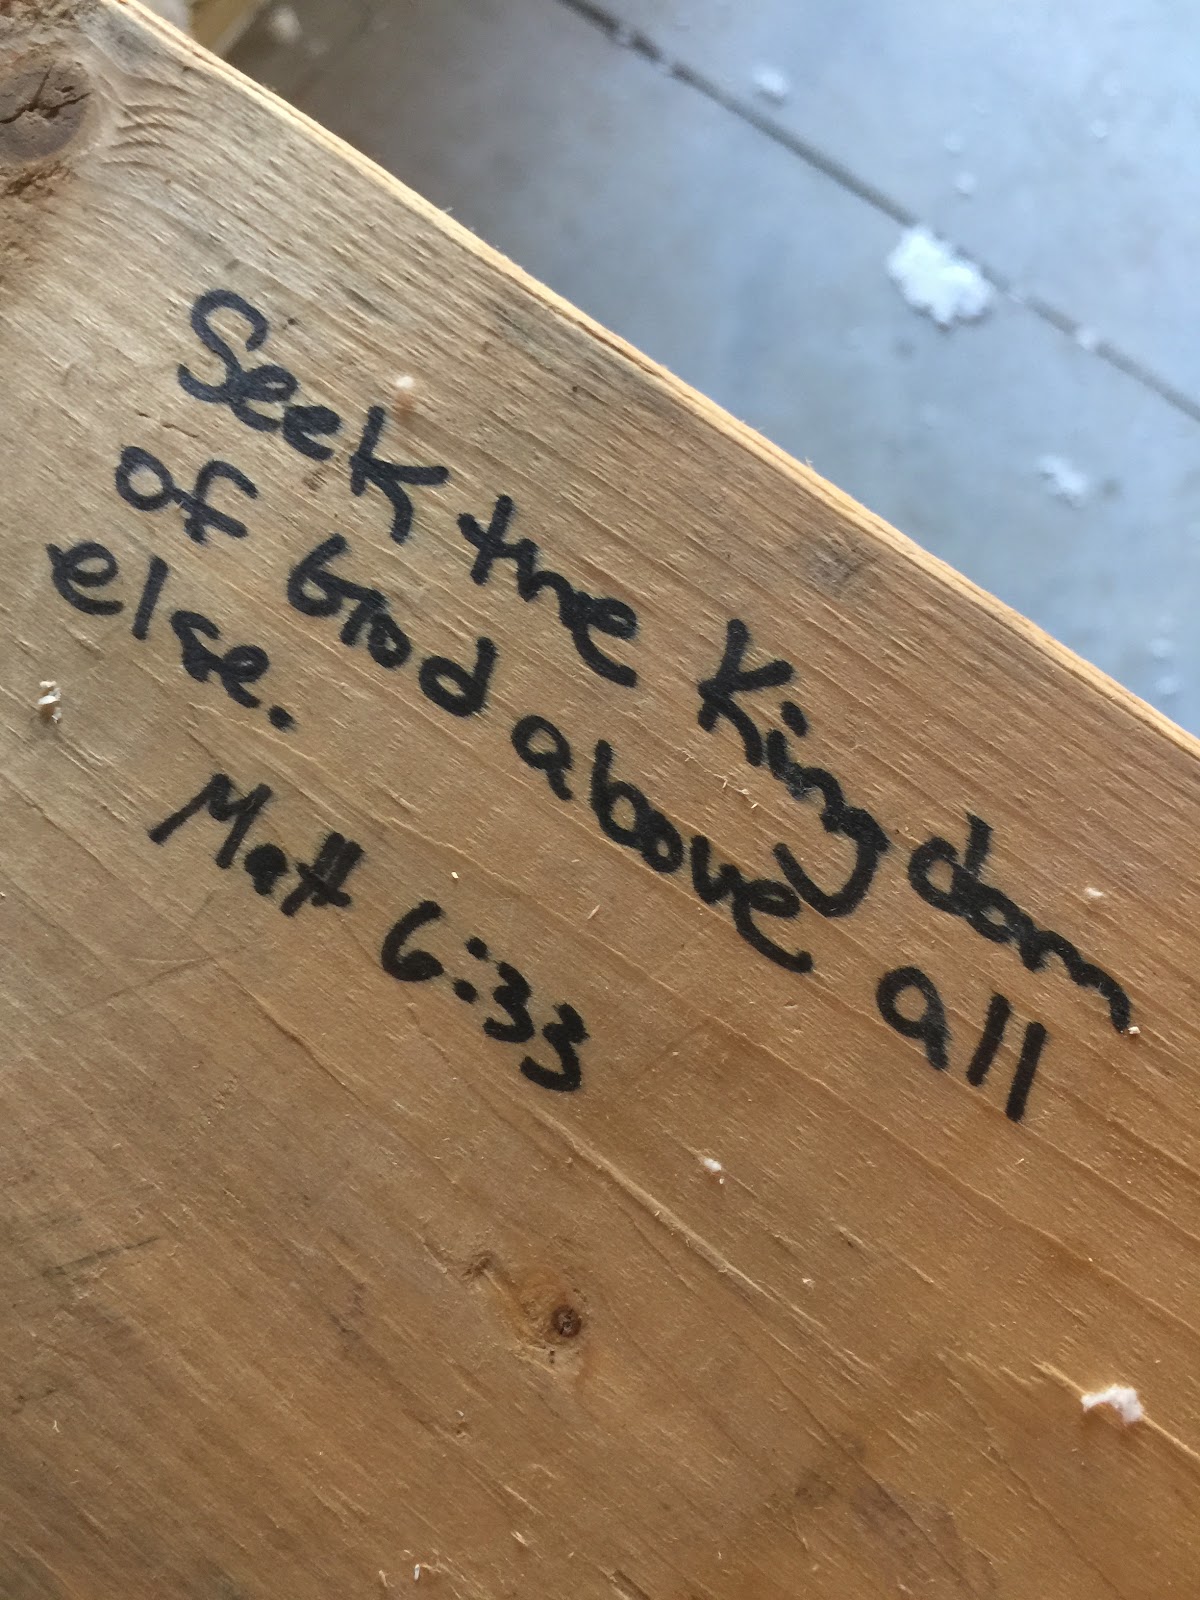 Seek the Kingdom
of God above all
else.
Matt 6:33